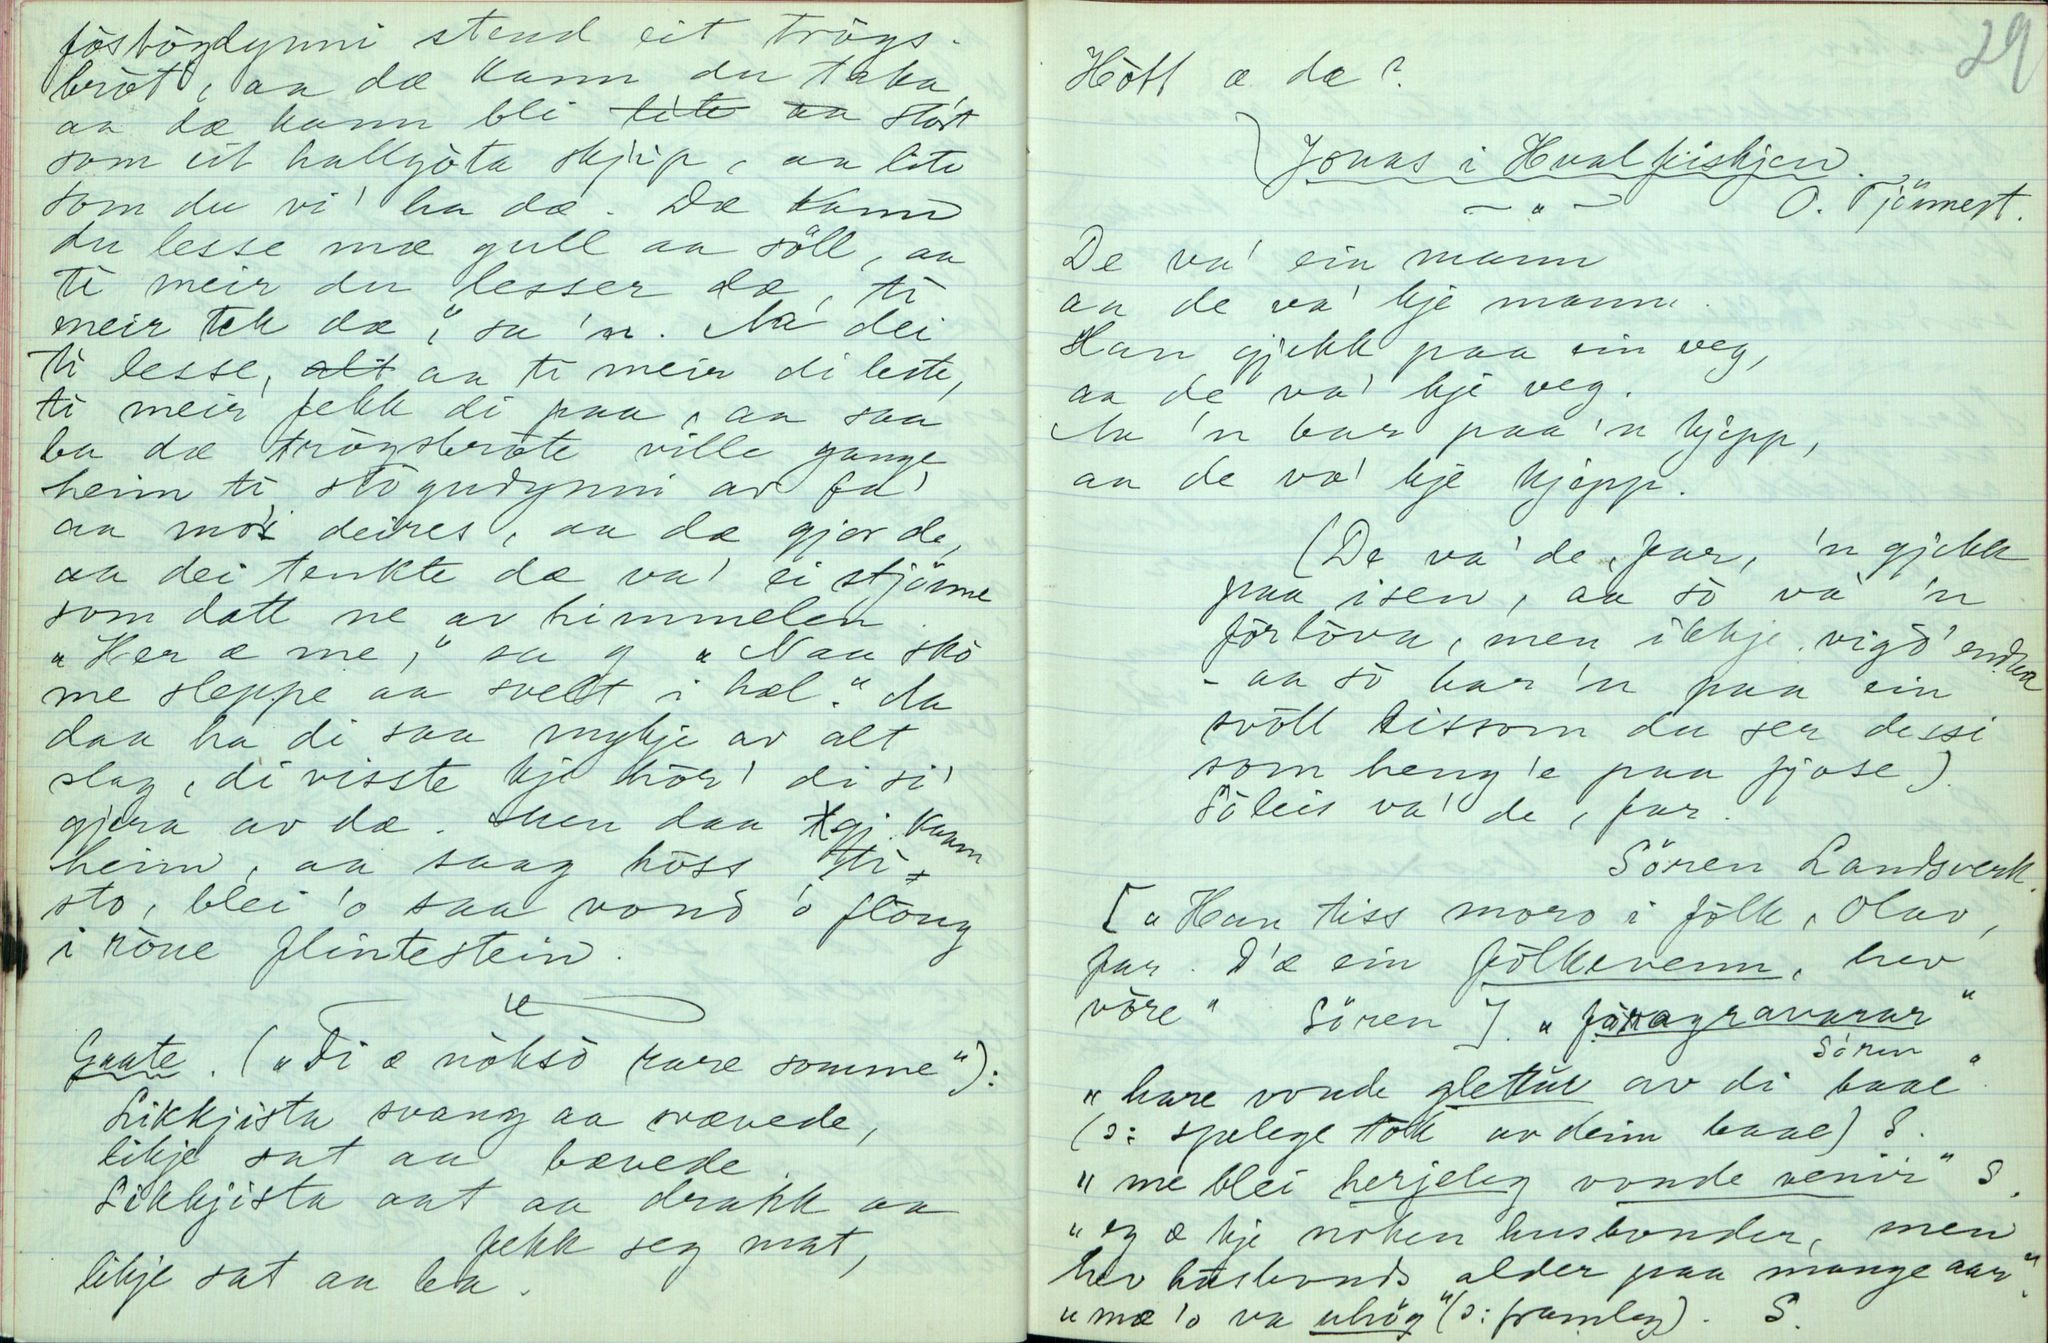 fösbögdynni stend eit trögs-
bröt, aa dæ kann du taka,
aa dæ kann bli lite aa stört
som eit hallgöta skjip, aa lite
som du vi' ha dæ. Dæ kann
du lesse mæ gull aa söll, aa
ti meir du lesser dæ, ti
meir tek dæ," sa 'n. Aa dei
ti lesse, alt aa ti meir di leste,
ti meir fekk di paa, aa saa
ba dæ trögsbröte ville gange
heim ti stögudynni av fa'
aa moi deires, aa dæ gjorde,
aa dei tenkte dæ va' ei stjönne
som datt ne av himmelen.
"Her æ me," sa g "Naa skö
me sleppe aa svelt i hæl." Aa
daa ha di saa mykje av alt
slag, di visste kje hör' di si'
gjera av dæ. Men daa gj. kaam
heim, aa saag höss ti
sto, blei 'o saa vond 'o flöug
i röue flintestein.
Gaate. ("Di æ nöksö rare somme"):
Likkjista svang aa svævede,
likje sat aa bævede.
Likkjista aat aa drakk aa
fekk seg mat,
likje sat aa ba.
29
Hött æ dæ?
Jonas i Hvalfiskjen.
O. Tjönnest.
De va' ein mann
aa de va' kje mann.
Han gjekk paa ein veg,
aa de va' kje veg.
Aa 'n bar paa 'n kjepp,
aa de va' kje kjepp.
(De va' de, far, 'n gjekk
paa isen, aa so va' 'n
förlova, men ikkje vigd' endaa
- aa so bar 'n paa ein
svöll tissom du ser dessi
som heng'e paa fjose).
Söleis va' de, far.
Sören Landsverk.
[" Han tiss moro i fölk, Olav,
far. D'æ ein fölkevenn, hev
vöre" Sören ]. "föragravarar"
Sören
"hare vonde glettur av di baae".
(ɔ: spelege tök av deim baae) S.
"me blei herjeleg vonde venir" S.
"eg æ kje nöken husbonder, men
hev husbonds alder paa mange aar".
"mæ 'o va uhög" (ɔ: framleg). S.